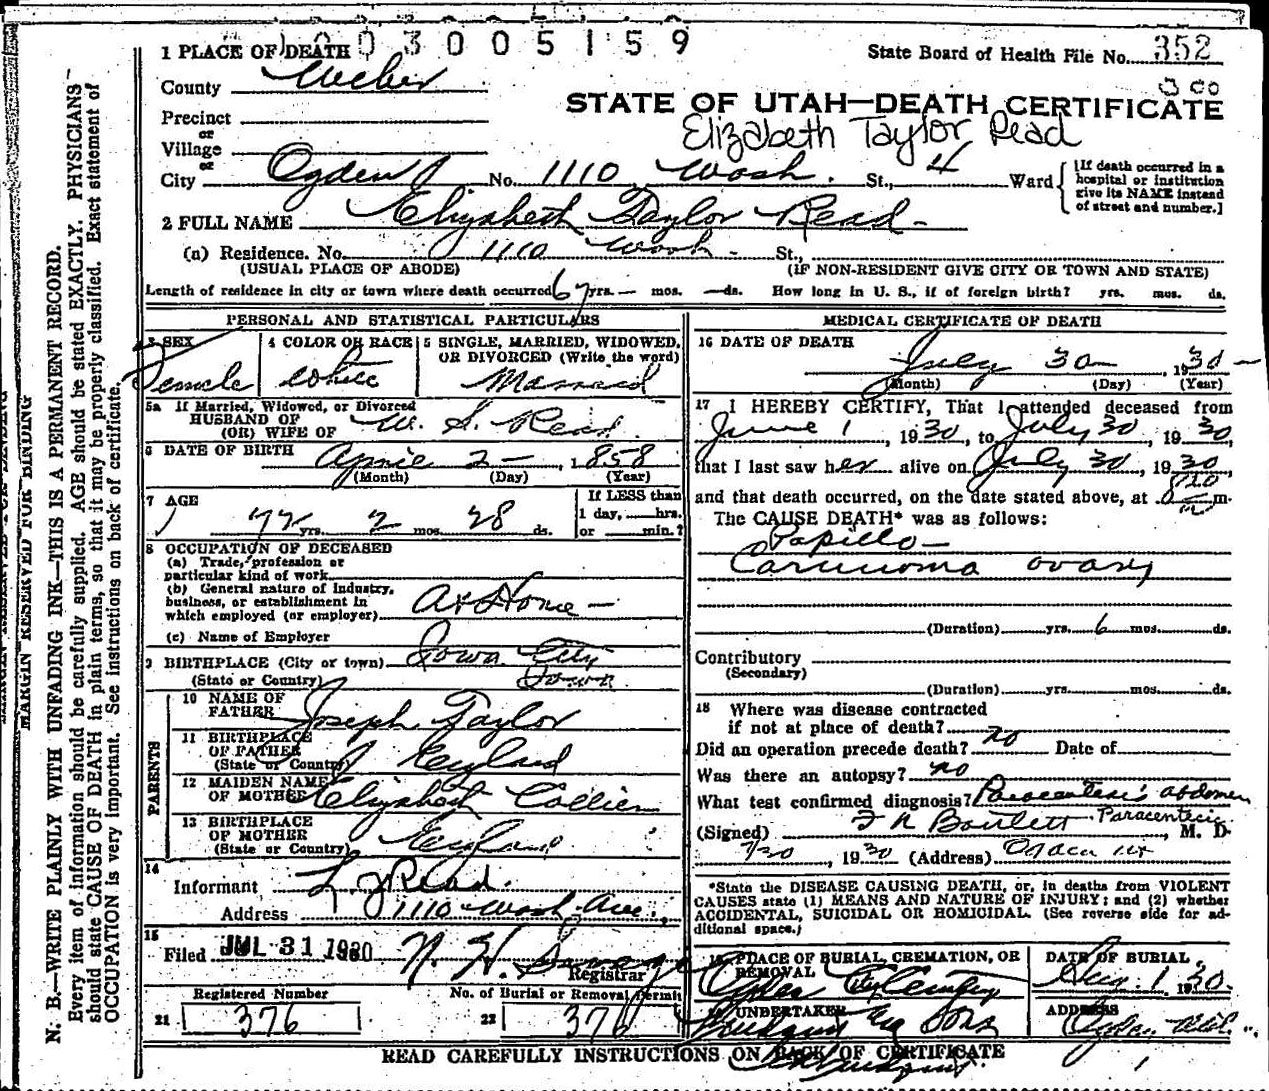 003005159
1 PLACE OF DEATH
State Board of Health File No. 352
County Weber
300
STATE OF UTAH—DEATH CERTIFICATE
Elizabeth Taylor Read
Precinct
or
Village
or
City Ogden No. 1110 Wash. St., 4 Ward
[If death occurred in a
hospital or institution
give its NAME instead
of street and number.]
2 FULL NAME Elizabeth Taylor Read
(a) Residence. No. 1110 Wash St.,
(USUAL PLACE OF ABODE) (IF NON-RESIDENT GIVE CITY OR TOWN AND STATE)
Length of residence in city or town where death occurred 67 yrs. — mos. — ds. How long in U. S., if of foreign birth? yrs. mos. ds.
PERSONAL AND STATISTICAL PARTICULARS
3 SEX
Female
4 COLOR OR RACE
White
5 SINGLE, MARRIED, WIDOWED,
OR DIVORCED (Write the word)
Married
5a If Married, Widowed, or Divorced
HUSBAND OF
(OR) WIFE OF W. S. Read
6 DATE OF BIRTH April 2 — , 1858
(Month) (Day) (Year)
7 AGE
72 yrs. 2 mos. 28 ds.
If LESS than
1 day, hrs.
or min.?
8 OCCUPATION OF DECEASED
(a) Trade, profession or
particular kind of work
(b) General nature of Industry,
business, or establishment in
which employed (or employer) At Home —
(c) Name of Employer
9 BIRTHPLACE (City or town) Iowa City
(State or Country) Iowa
PARENTS
10 NAME OF
FATHER Joseph Taylor
11 BIRTHPLACE
OF FATHER
(State or Country) England
12 MAIDEN NAME
OF MOTHER Elizabeth Collier
13 BIRTHPLACE
OF MOTHER
(State or Country) England
14
Informant L. J. Read.
Address 1110 Wash. Ave.,
15
Filed JUL 31 1930 N. H. Savage
Registrar
Registered Number No. of Burial or Removal Permit
21 376 22 376
MEDICAL CERTIFICATE OF DEATH
16 DATE OF DEATH
July 30 , 1930
(Month) (Day) (Year)
17 I HEREBY CERTIFY, That I attended deceased from
June 1 , 1930, to July 30, 1930,
that I last saw her alive on July 30, 1930
and that death occurred, on the date stated above, at m.
The CAUSE DEATH* was as follows:
Papillo —
Carcinoma ovary
(Duration) yrs. 6 mos. ds.
Contributory
(Secondary)
(Duration) yrs. mos. ds.
18 Where was disease contracted
if not at place of death?
Did an operation precede death? no Date of
Was there an autopsy? no
What test confirmed diagnosis? Paracentesis abdomen
Paracentecis
(Signed) F N Bartlett , M. D.
7/30 , 1930 (Address) Ogden Ut
*State the DISEASE CAUSING DEATH, or, in deaths from VIOLENT
CAUSES state (1) MEANS AND NATURE OF INJURY; and (2) whether
ACCIDENTAL, SUICIDAL OR HOMICIDAL. (See reverse side for ad-
ditional space.)
19 PLACE OF BURIAL, CREMATION, OR
REMOVAL
Ogden City Cemetery
DATE OF BURIAL
Aug. 1 1930.
20 UNDERTAKER
& Sons
ADDRESS
Ogden, Utah.
READ CAREFULLY INSTRUCTIONS ON BACK OF CERTIFICATE
MARGIN RESERVED FOR BINDING
N. B.—WRITE PLAINLY WITH UNFADING INK—THIS IS A PERMANENT RECORD.
Every item of information should be carefully supplied. AGE should be stated EXACTLY. PHYSICIANS
should state CAUSE OF DEATH in plain terms, so that it may be properly classified. Exact statement of
OCCUPATION is very important. See instructions on back of certificate.